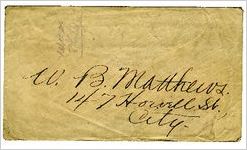 W. B. Matthews.
147 Howell St.
City.